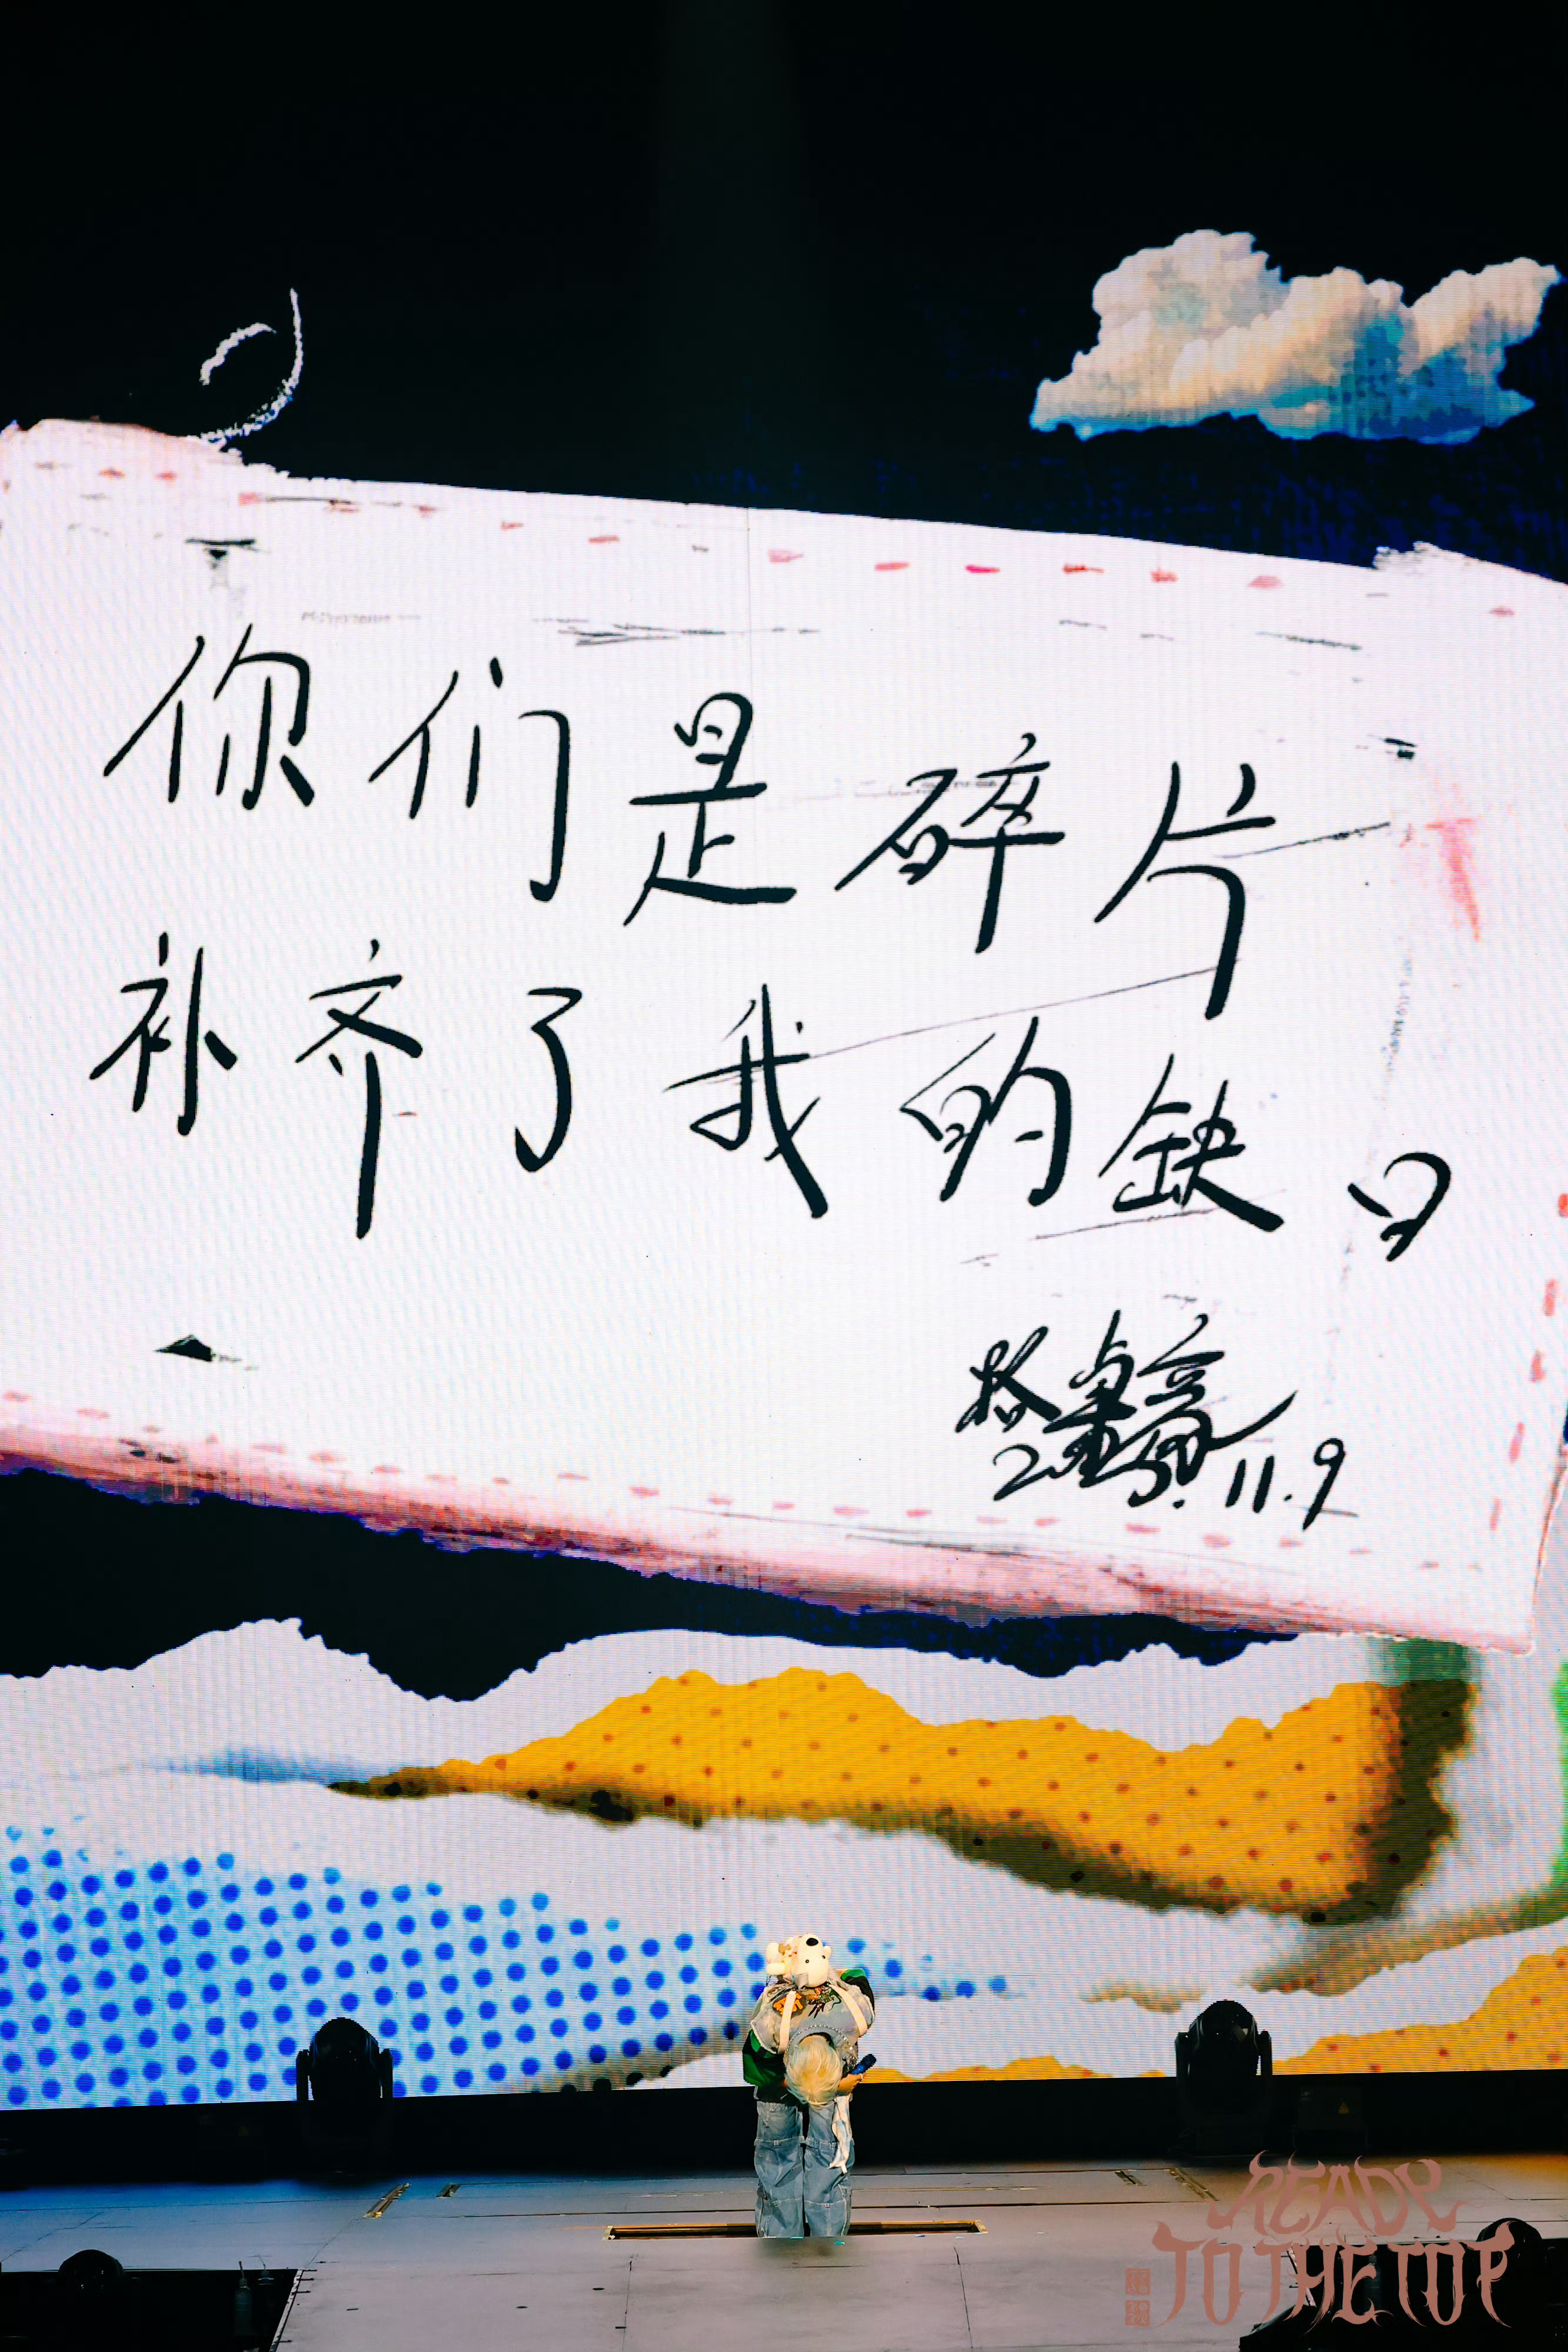 你们是碎片
补齐了我的缺口
2025.11.9
READY
TO THE TOP